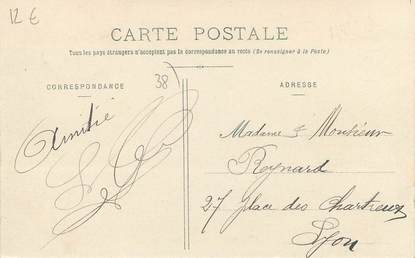 12 €
CARTE POSTALE
Tous les pays étrangers n'acceptent pas la correspondance au recto (Se renseigner à la Poste)
38
CORRESPONDANCE
Amitié
ADRESSE
Madame & Monsieur
Reynard
27 place des Chartreux
Lyon